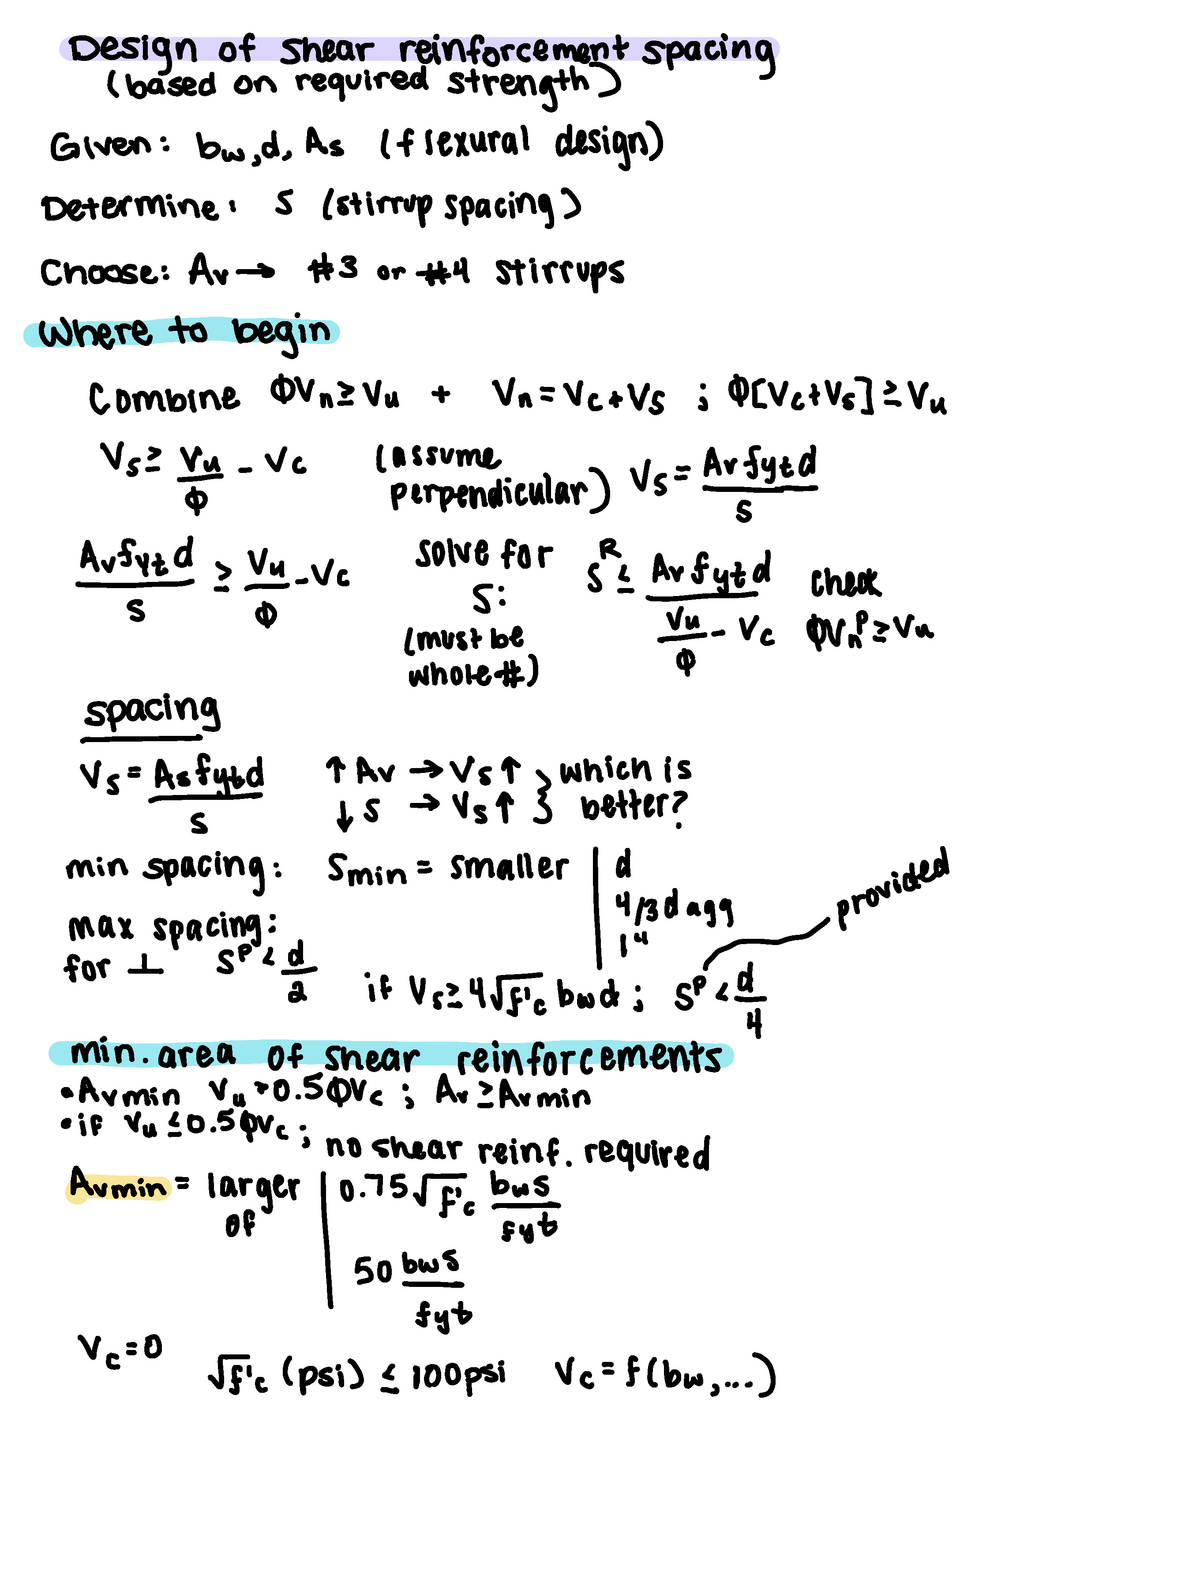 Design of shear reinforcement spacing
(based on required strength)
Given: bw,d, As (flexural design)
Determine: S (stirrup spacing)
Choose: Av → #3 or #4 stirrups
Where to begin
Combine ΦVn≥Vu + Vn=Vc+Vs ; Φ[Vc+Vs]≥Vu
Vs≥ Vu/Φ - Vc (assume perpendicular) Vs= Avfytd/s
Avfytd/s ≥ Vu/Φ - Vc solve for S: (must be whole #) S^R ≤ Avfytd/(Vu/Φ - Vc) check ΦVn^P≥Vu
spacing
Vs= Asfytd/s ↑Av → Vs↑ } which is
↓S → Vs↑ } better?
min spacing: Smin = smaller | d
4/3dagg
1"
max spacing:
for ⊥ S^P< d/2 if Vs≥4√f'c bwd ; S^P< d/4 provided
min. area of shear reinforcements
•Avmin Vu>0.5ΦVc ; Av≥Avmin
•if Vu≤0.5ΦVc ; no shear reinf. required
Avmin = larger of | 0.75√f'c bws/fyt
50 bws/fyt
Vc=0
√f'c (psi) ≤ 100psi Vc=f(bw,...)